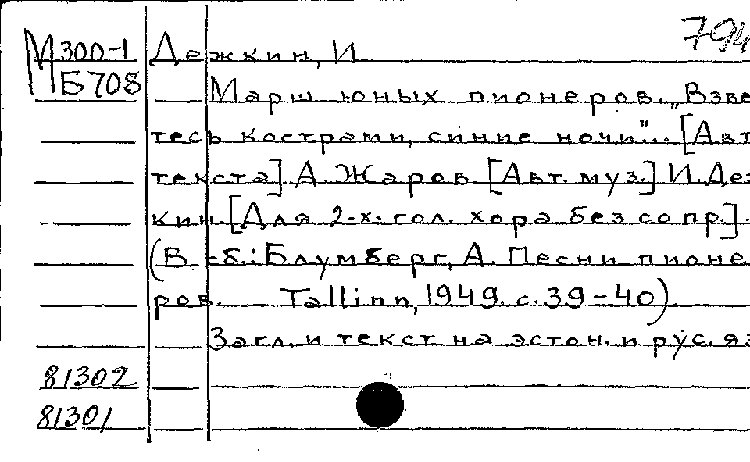 794
М300-1 Дежкин, И
Б708 Марш юных пионеров. „Взве
тесь кострами, синие ночи"... [Авт
текста] А. Жаров. [Авт. муз.] И. Деж
кин. [Для 2-х. гол. хора без сопр.]
(В сб.: Блумберг, А. Песни пионе
ров. Tallinn, 1949. с. 39-40).
Загл. и текст на эстон. и рус. яз
81302
81301